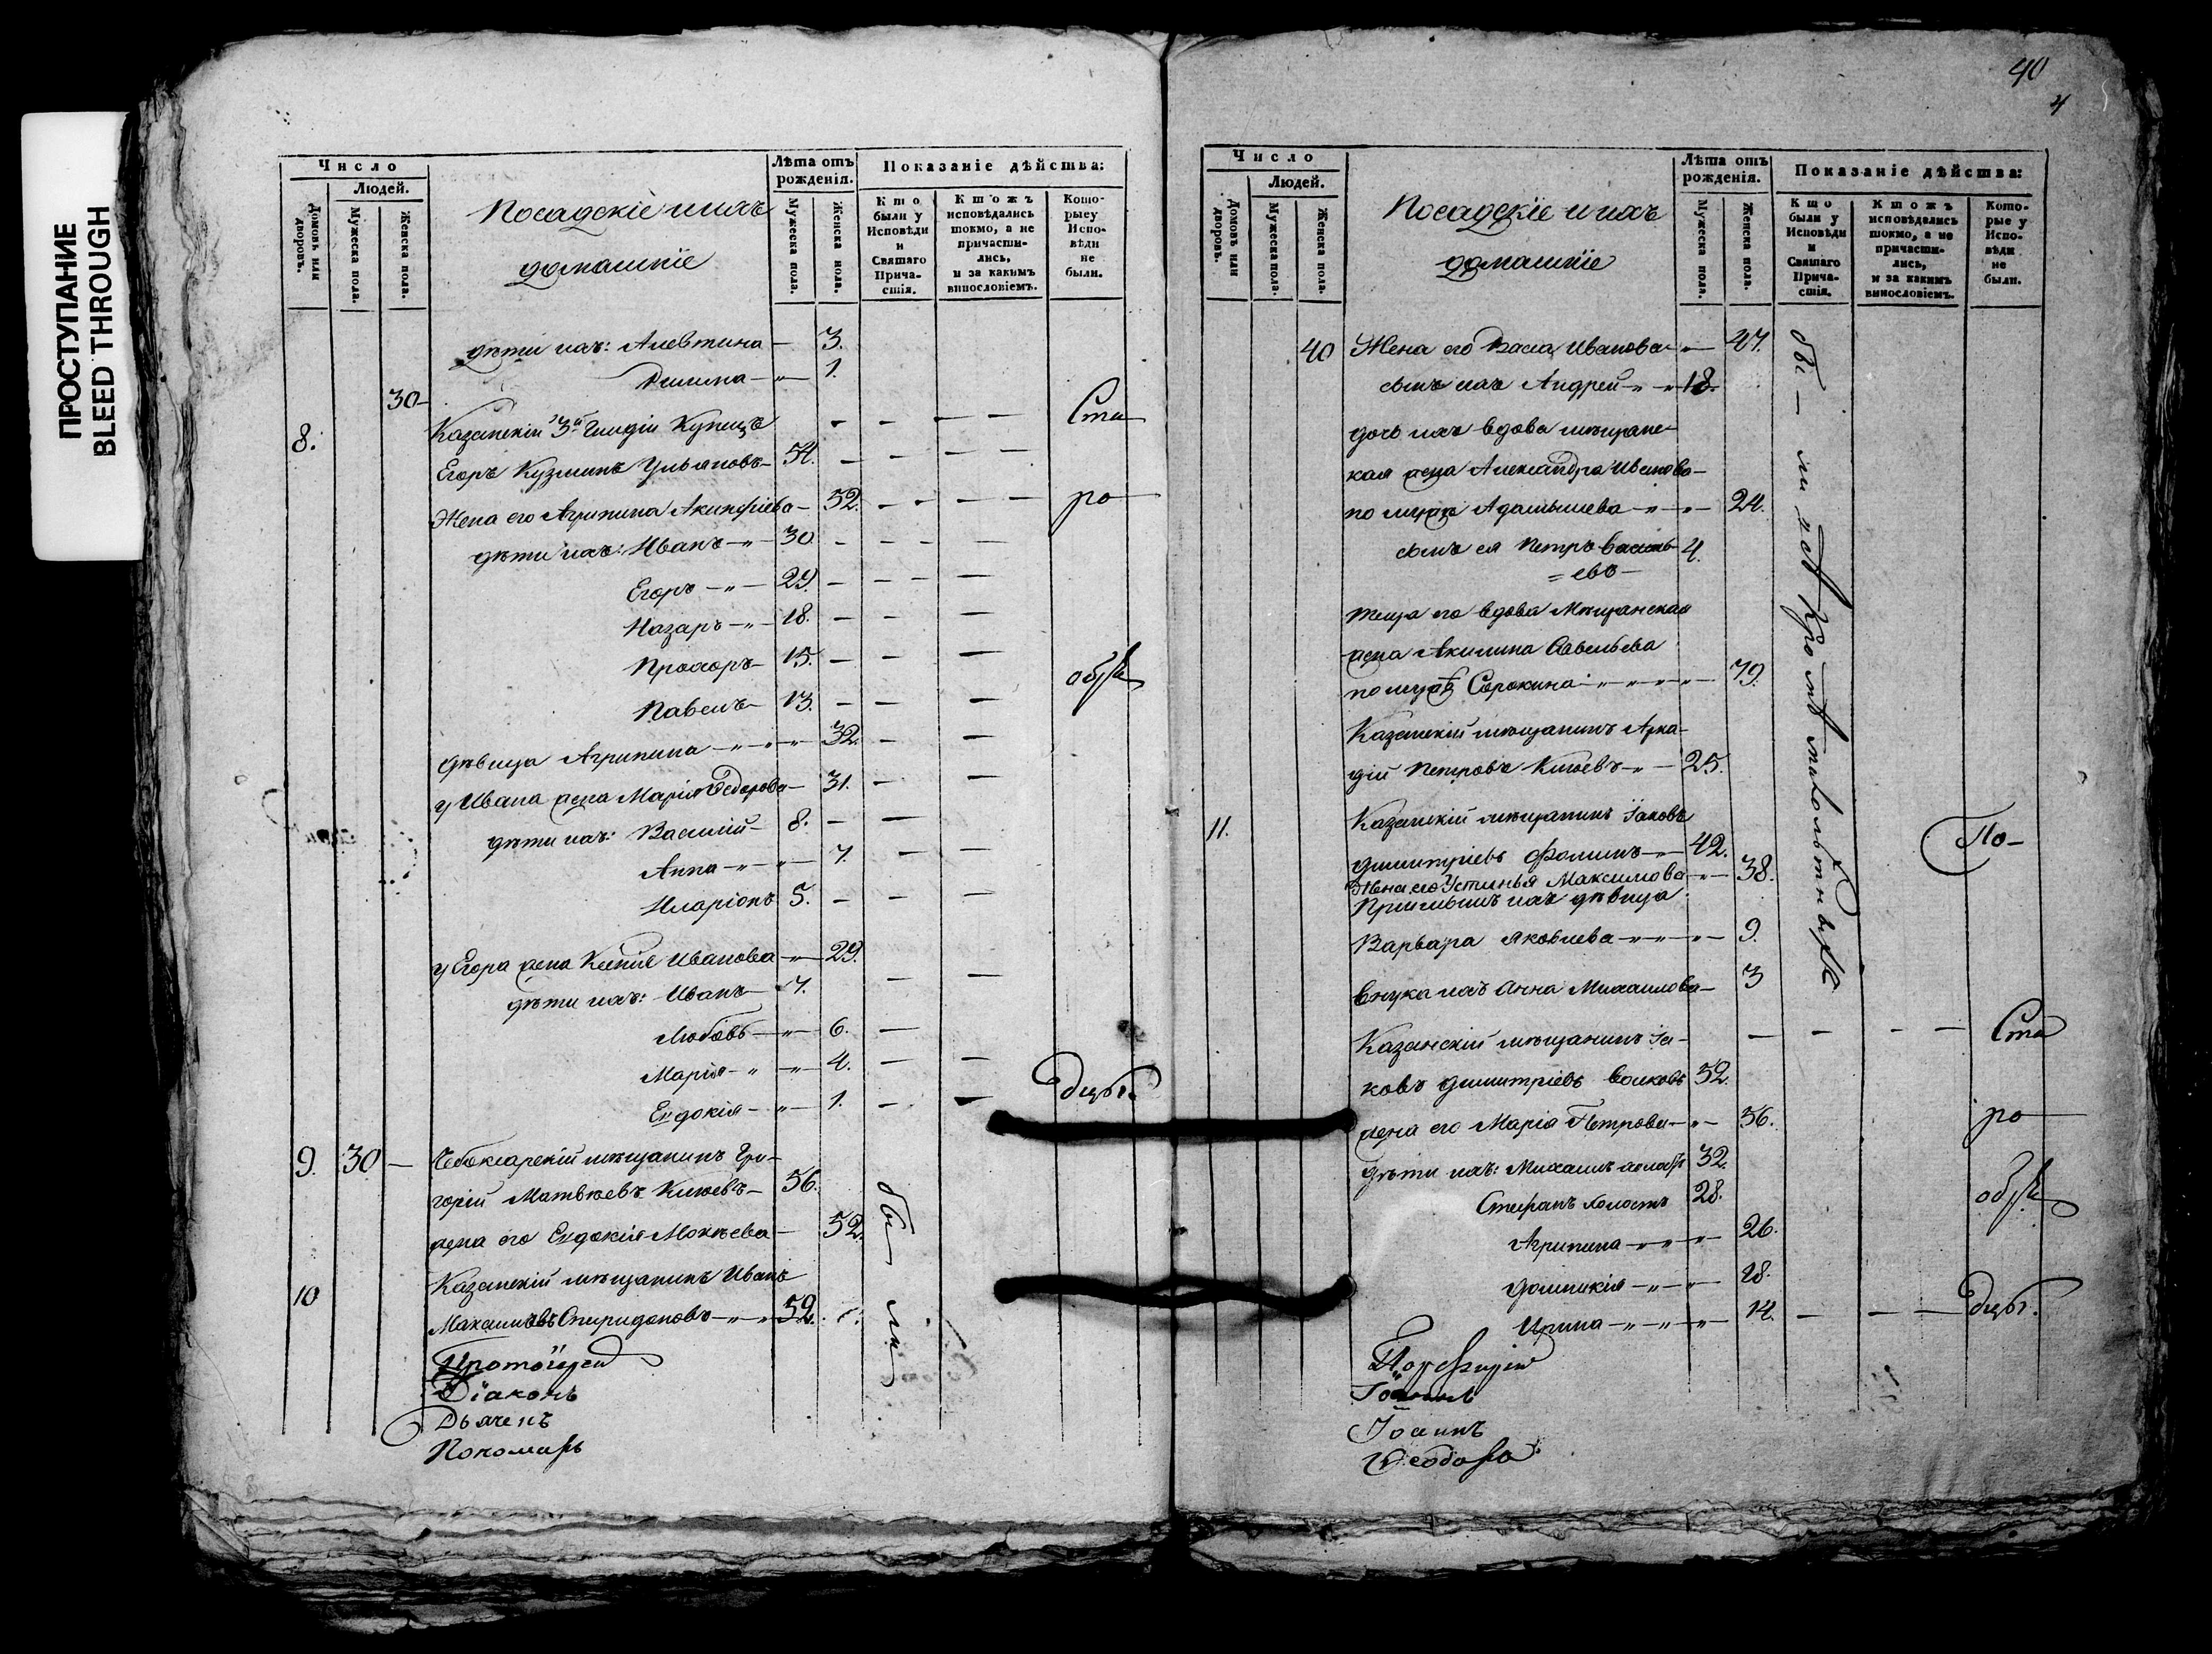 ПРОСТУПАНИЕ
BLEED THROUGH
Число
Людей.
Домовъ или дворовъ.
Мужеска пола.
Женска пола.
Посадскіе и ихъ
домашніе
Лѣта отъ рожденія.
Мужеска пола.
Женска пола.
Показаніе дѣйства:
Кто были у Исповѣди и Святаго Причастія.
Ктожъ исповѣдались токмо, а не причастились, и за какимъ винословіемъ.
Которые у Исповѣди не были.
дѣти ихъ: Алевтина — 3.
1.
30 —
8. Казанскій 3й Гильдіи Купецъ — — — — Ста
Егоръ Кузминъ Ульяновъ — 54. — — — —
Жена его Агрипина Акинфіева — 52. — — — — ро
дѣти ихъ: Иванъ — " 30. — — — —
Егоръ — " — 29. — — — —
Назаръ — " 18. — — —
Прохоръ — 15. — — — обря
Павелъ — 13. — — —
дѣвица Агрипина — " — " — " 32. — —
у Ивана жена Марія Федорова — 31. — —
дѣти ихъ: Василій — 8. — —
Анна — " — " — 7. — —
Иларіонъ 5. — — —
у Егора жена Ксенія Иванова — " — 29.
дѣти ихъ: Иванъ — 7. — —
Любовь — " — 6. —
Марія — " — " — 4. — —
Евдокія — " — " — 1. — — дцы.
9. 30 — Чебоксарскій мѣщанинъ Гри-
горій Матвѣевъ Китаевъ — 56.
жена его Евдокія Мокѣева — 52.
10 Казанскій мѣщанинъ Иванъ
Максимовъ Спиридоновъ — " — " 52.
бы — ли
Протоіерей
Діаконъ
Дьячекъ
Пономарь
40
4
Число
Людей.
Домовъ или дворовъ.
Мужеска пола.
Женска пола.
Посадскіе и ихъ
домашніе
Лѣта отъ рожденія.
Мужеска пола.
Женска пола.
Показаніе дѣйства:
Кто были у Исповѣди и Святаго Причастія.
Ктожъ исповѣдались токмо, а не причастились, и за какимъ винословіемъ.
Которые у Исповѣди не были.
40 Жена его Васса Иванова — " — 47.
сынъ ихъ Андрей — " — " 18.
дочь ихъ вдова мѣщанс-
кая жена Александра Иванова —
по мужѣ — " — " — 24.
сынъ ея Петръ Василь- 4.
= евъ —
теща его вдова Мѣщанская
жена Акилина Савельева
по мужѣ Сорокина — " — " — " — " — 79.
Казанскій мѣщанинъ Арка-
дій Петровъ Китаевъ — " — 25.
11. Казанскій мѣщанинъ Іаковъ
Димитріевъ Фоминъ — " — 42.
Жена его Устинья Максимова — " — 38.
ихъ дѣвица
Варвара Яковлева — " — " — " — 9.
внука ихъ Анна Михаилова — 3
бы — ли всѣ кромѣ малолѣтныхъ
По —
Казанскій мѣщанинъ Іа- — — — — Ста
ковъ Димитріевъ Волковъ 52.
жена его Марія Петрова — " — 56. ро
дѣти ихъ: Михаилъ холостъ 32.
Стефанъ холостъ 28. обря
Агрипина — " — " — " — 26.
Домникія — " — " — 18.
Ирина — " — " — " — 14. — — — дцы.
Порфирій
Іоаннъ
Іоаннъ
Ѳеодоръ